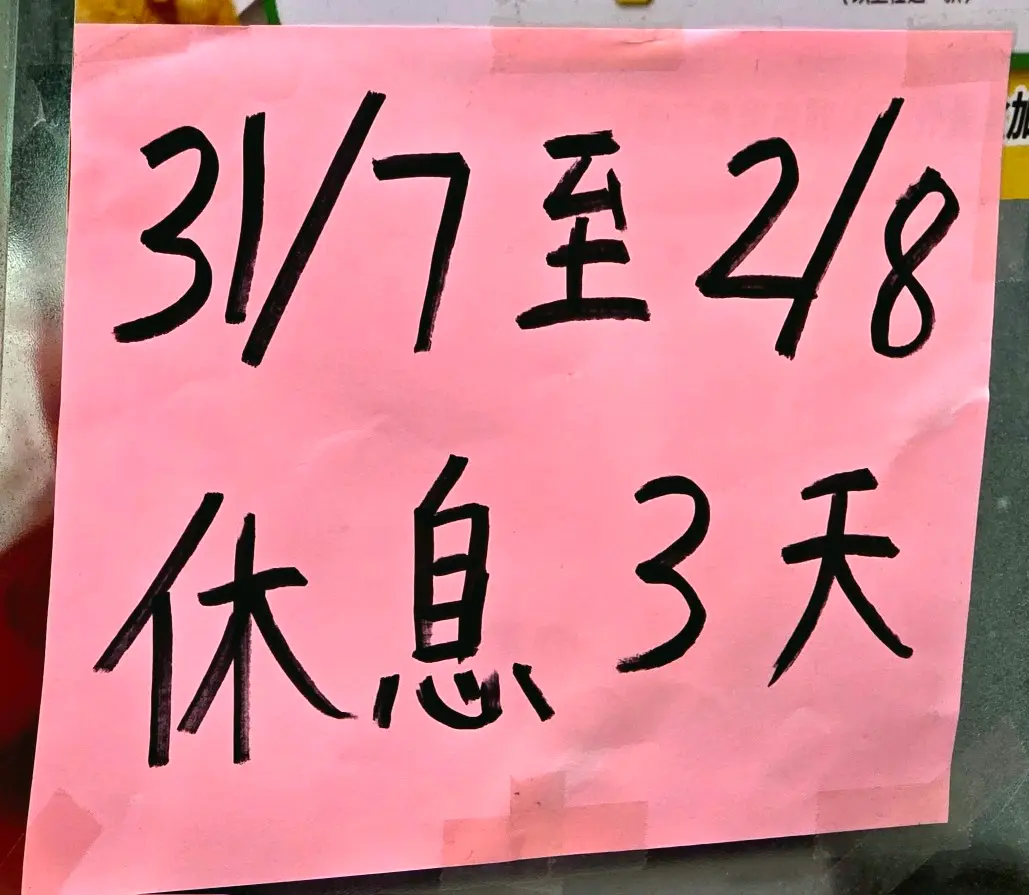 31/7至2/8
休息3天
加